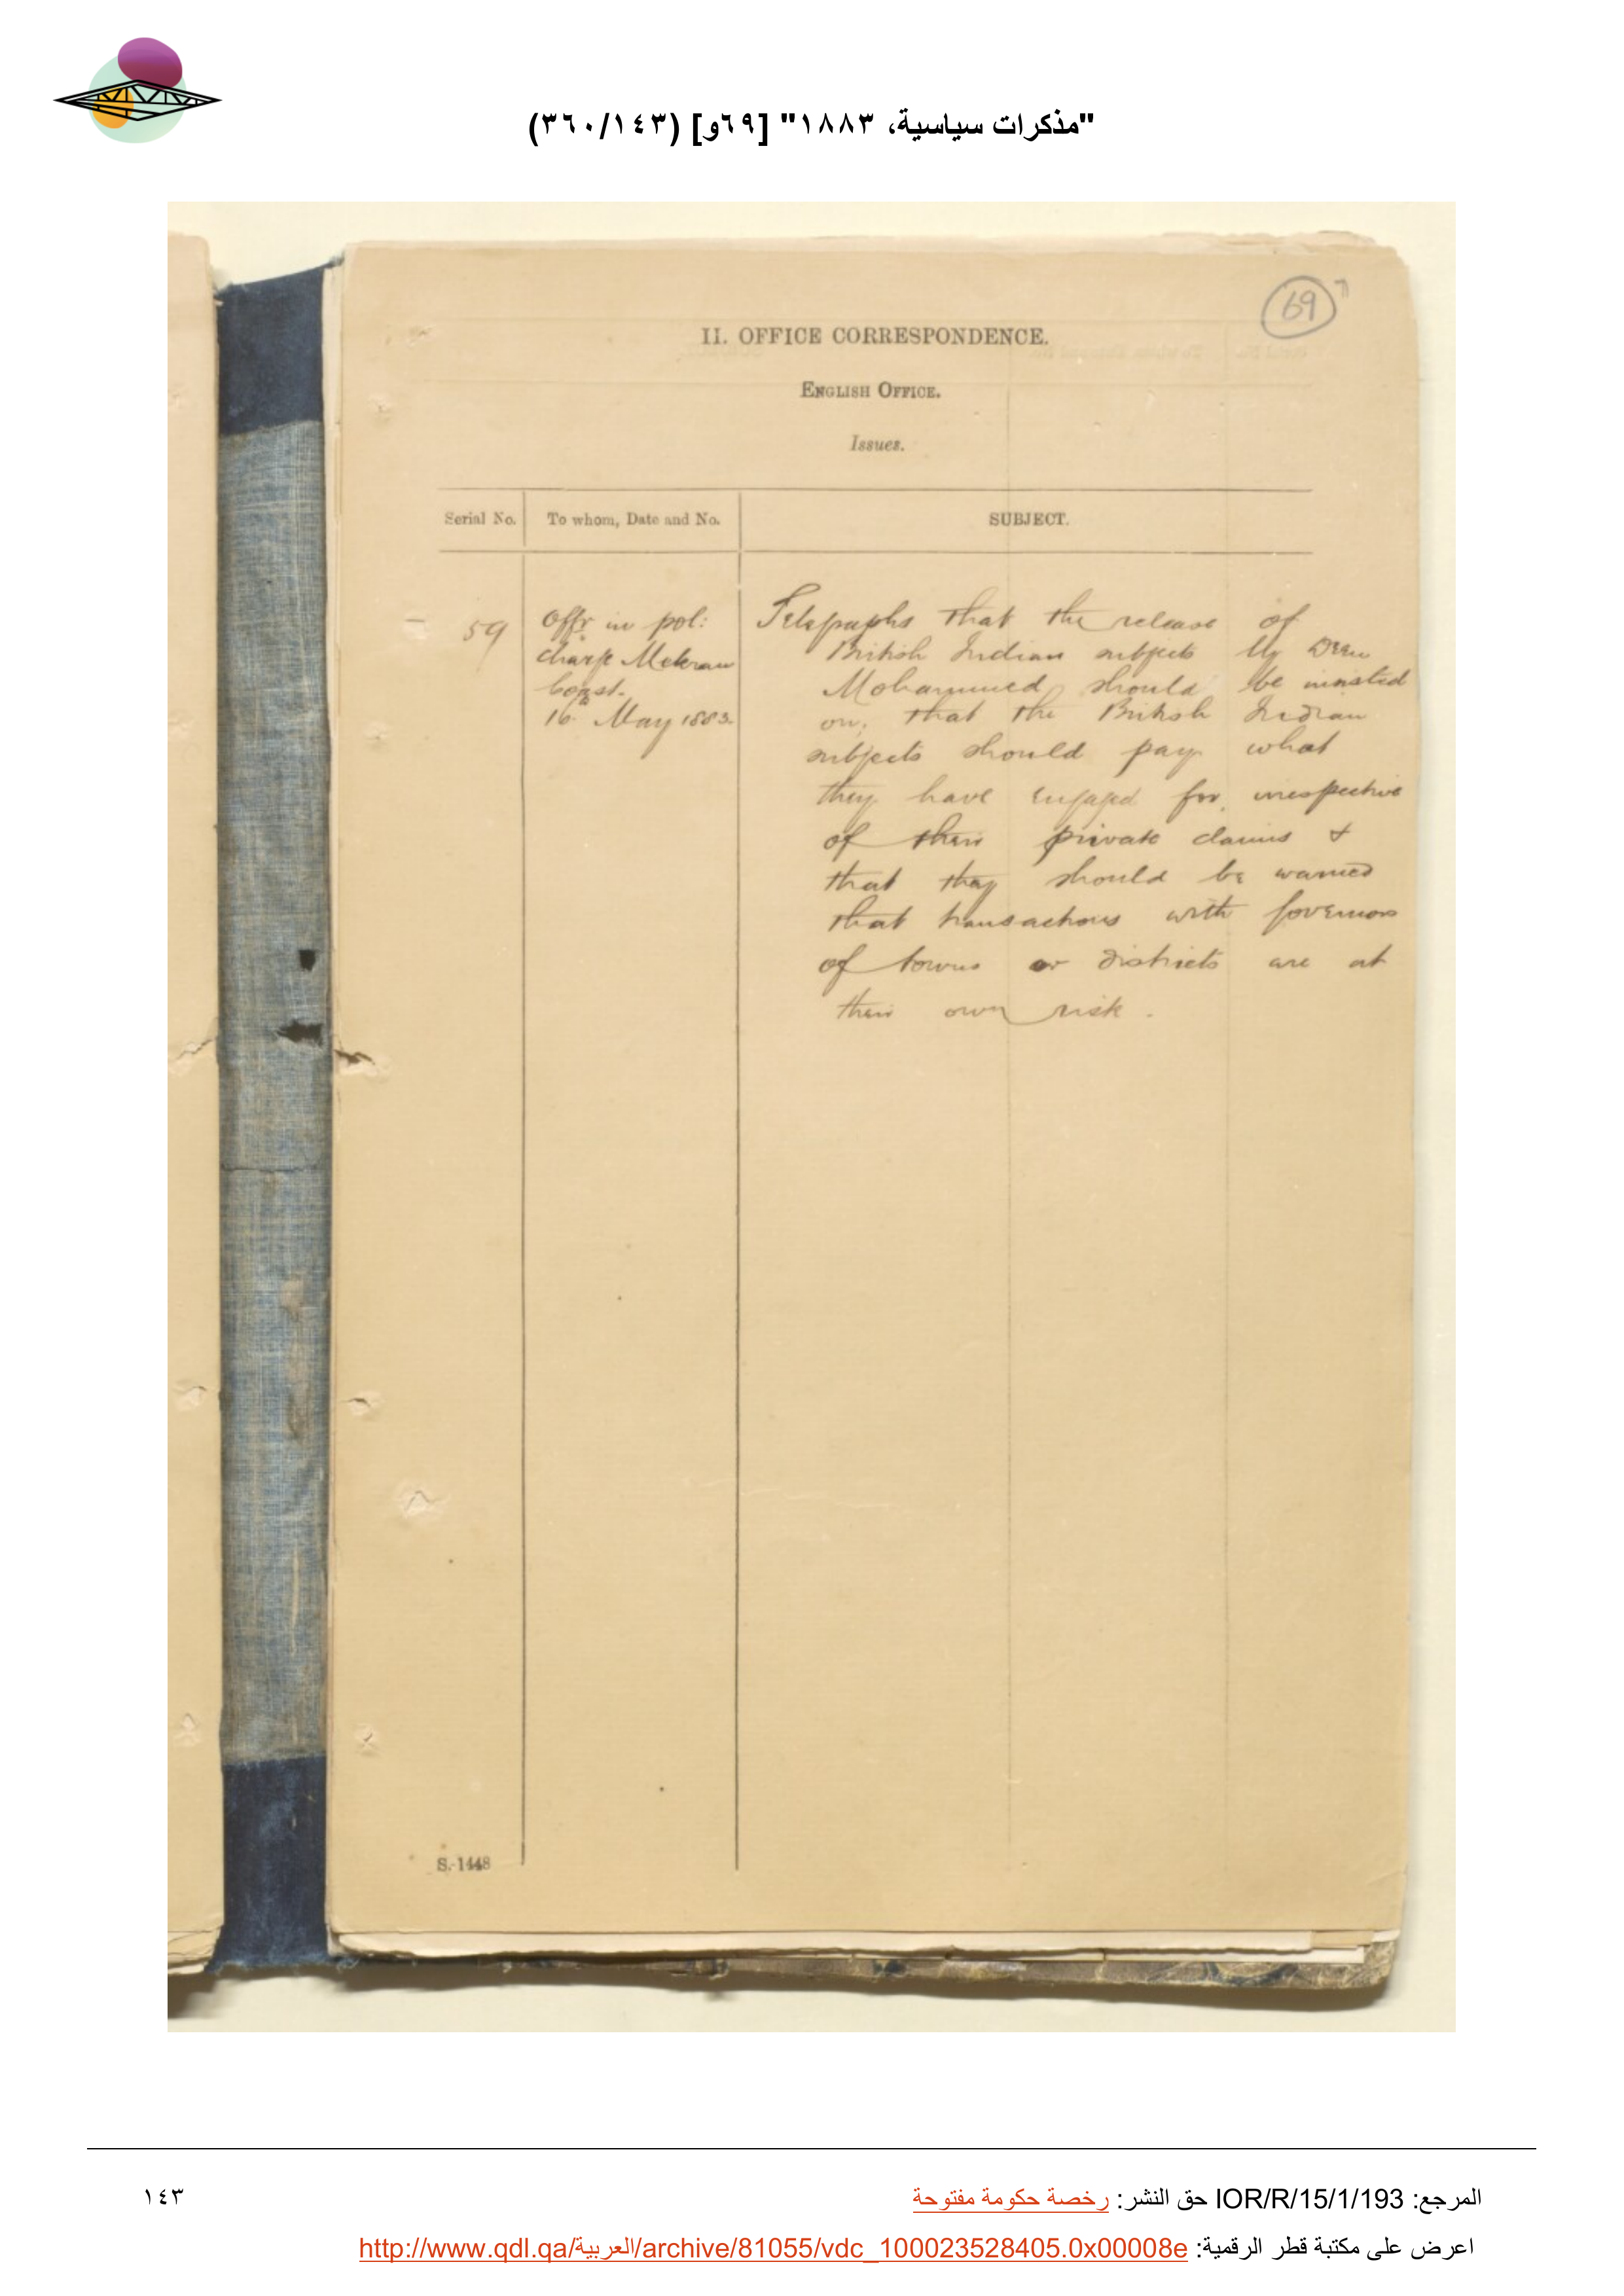 "مذكرات سياسية، ١٨٨٣" [٦٩و] (٣٦٠/١٤٣)
69
II. OFFICE CORRESPONDENCE.
ENGLISH OFFICE.
Issues.
Serial No. To whom, Date and No. SUBJECT.
59
Offr in pol:
charge Mekran
Coast.
16 May 1883.
Telegraphs that the release of
British Indian subjects by Deen
Mohammed should be insisted
on; that the British Indian
subjects should pay what
they have engaged for irrespective
of their private claims &
that they should be warned
that transactions with governors
of towns or districts are at
their own risk.
S.-1448
المرجع: IOR/R/15/1/193 حق النشر: رخصة حكومة مفتوحة
١٤٣
اعرض على مكتبة قطر الرقمية: http://www.qdl.qa/العربية/archive/81055/vdc_100023528405.0x00008e